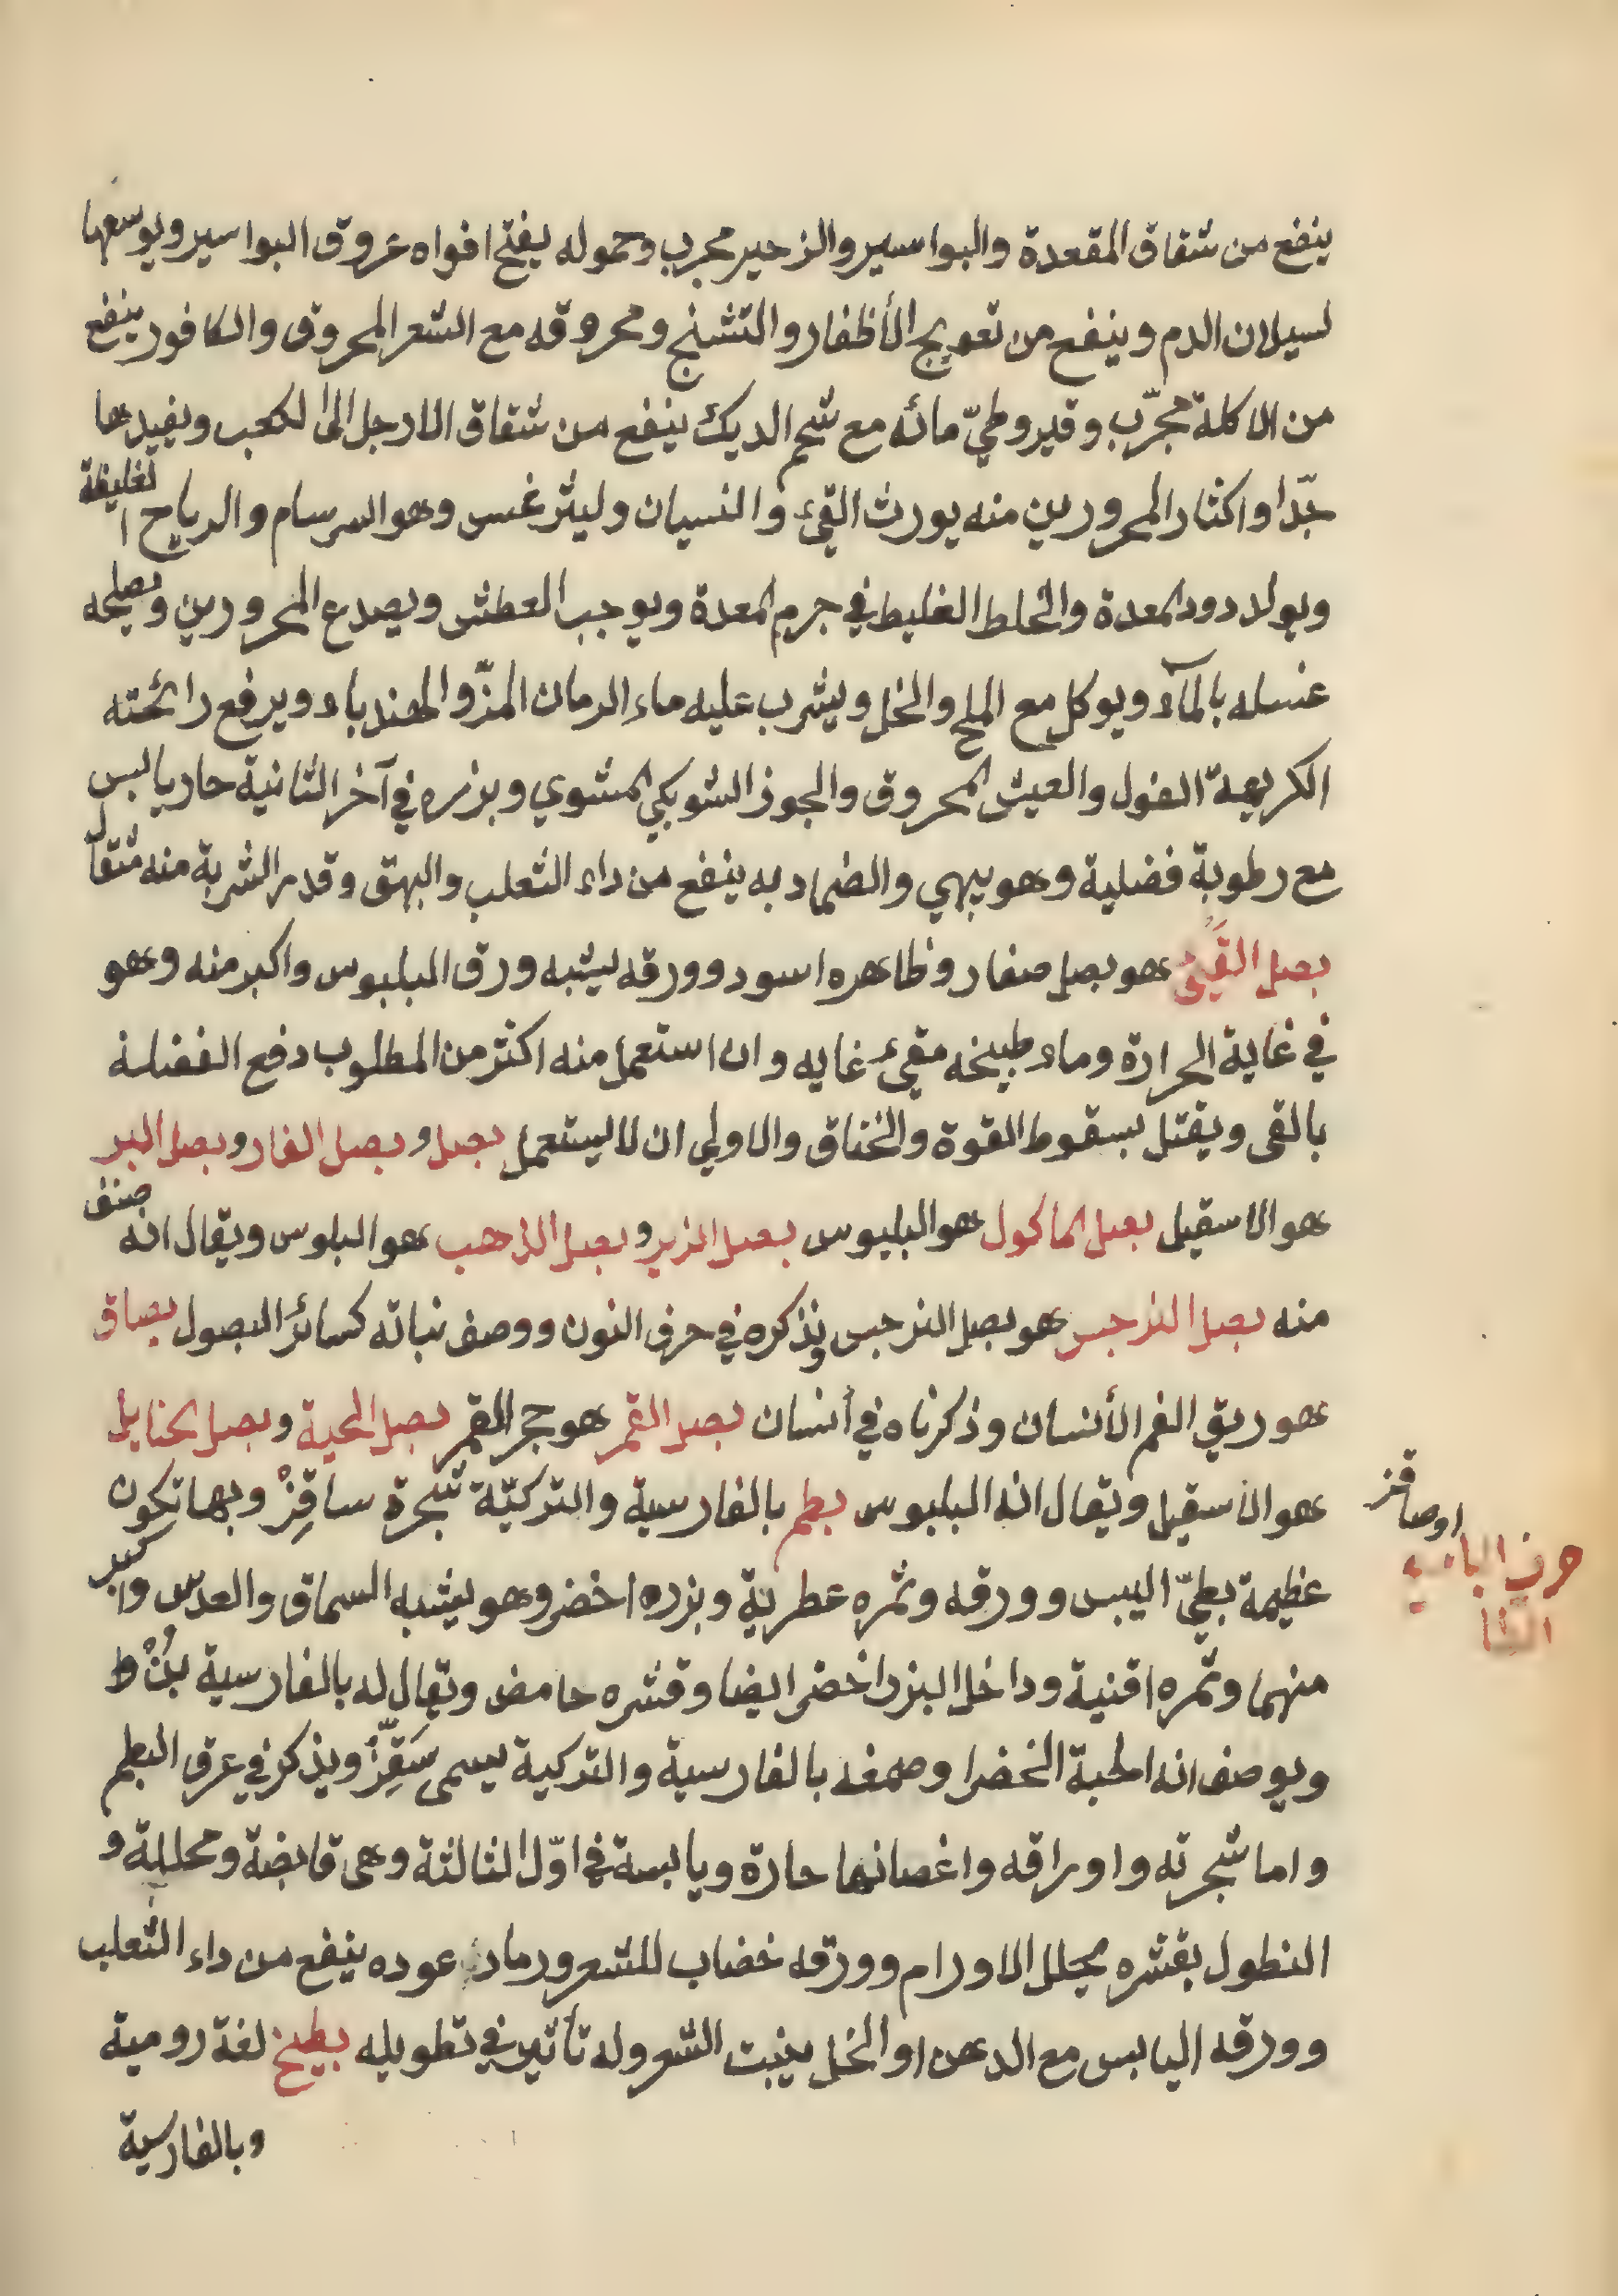 ينفع من شقاق المقعدة والبواسير والزحير مجرب وحموله يفتح افواه عروق البواسير ويوسعها
لسيلان الدم وينفع من تعويج الأظفار والتشنج ومحروقه مع الشعر المحروق والكافور ينفع
من الاكلة مجرّب وقيروطيّ مائه مع شحم الديك ينفع من شقاق الارجل الى الكعب ويفيدها
جدّا واكثار المحرورين منه يورث القيء والنسيان وليثرغس وهو السرسام والرياح الغليظة
ويولد دود المعدة والخلط الغليظ في جرم المعدة ويوجب العطش ويصدع المحرورين ويصلحه
غسله بالمآء ويوكل مع الملح والخل ويشرب عليه ماء الرمان المزّ والهندباء ويرفع رائحته
الكريهة الفول والعيش المحروق والجوز الشوبكي المشوي وبزره في آخر الثانية حار يابس
مع رطوبة فضلية وهو يبهي والضماد به ينفع من داء الثعلب والبهق وقدر الشربة منه مثقال
بصل القَيُئ هو بصل صغار وظاهره اسود وورقه يشبه ورق البلبوس واكبر منه وهو
في غاية الحرارة وماء طبيخه مقيء غايه وان استعمل منه اكثر من المطلوب دفع الفضلة
بالقى ويقتل بسقوط القوة والخناق والاولي ان لا يستعمل بصل و بصل الفار وبصل البر
هو الاسقيل بصل الماكول هو البلبوس بصل الزير وبصل الذهب هو البلوس ويقال انه صنف
منه بصل النرجس هو بصل النرجس ونذكره في حرف النون ووصف نباته كسائر البصول بصاق
هو ريق الفم الأنسان وذكرناه في أنسان بصل القمر هو حجر القمر بصل الحية وبصل الخنايل
هو الاسقيل ويقال انه البلبوس بطم بالفارسية والتركيّة شجرة ساقِزْ وبها تكون
اوصاقز
حرف البا
عظيمة بطيّ اليبس وورقه وثمره عطرية وبزره اخضر وهو يشبه السماق والعدس واكبر
منهما وثمره اقنية وداخل البزر اخضر ايضا وقشره حامض ويقال له بالفارسية بُنْ وط
ويوصف انه الحبة الخضرا وصمغه بالفارسية والتركية يسمى سَقِزّ ويذكر في عرق البطم
واما شجرته واوراقه واغصانها حارة ويابسة في اوّل الثالثة وهى قابضة ومحللة و
النطول بقشره يحلل الاورام وورقه خضاب للشعر ورماد عوده ينفع من داء الثعلب
وورقه اليابس مع الدهن او الخل ينبت الشعر وله تأثير في تطويله بطيخ لغة رومية
وبالفارسية